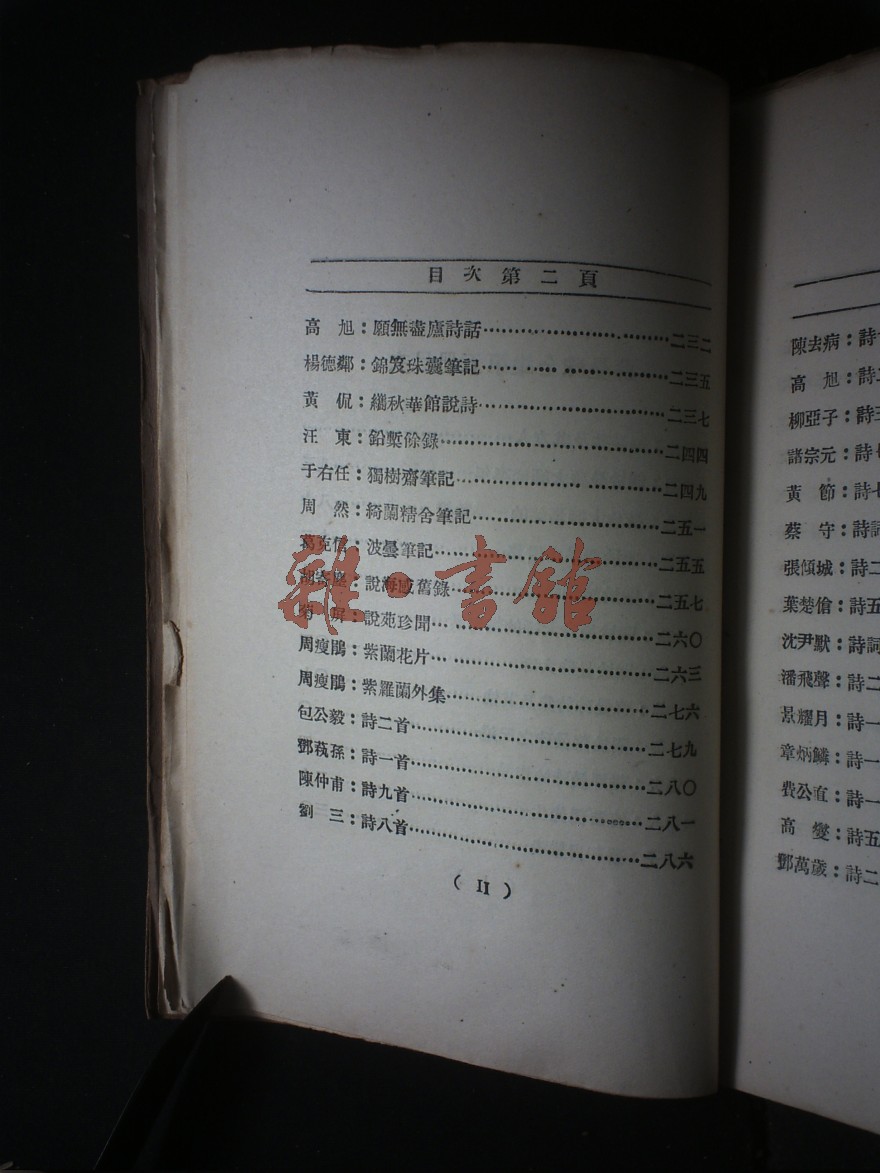 目次第二頁
高旭：願無盡廬詩話……二三二
楊德鄰：錦笈珠囊筆記……二三五
黃侃：纗秋華館說詩……二三七
汪東：鉛槧餘錄……二四四
于右任：獨樹齋筆記……二四九
周然：綺蘭精舍筆記……二五一
葛克信：波曇筆記……二五五
胡寄塵：說海感舊錄……二五七
菊屏：說苑珍聞……二六〇
周瘦鵑：紫蘭花片……二六三
周瘦鵑：紫羅蘭外集……二七六
包公毅：詩二首……二七九
鄧秋孫：詩一首……二八〇
陳仲甫：詩九首……二八一
劉三：詩八首……二八六
( II )
雜·書館
陳去病：詩
高旭：詩二
柳亞子：詩三
諸宗元：詩七
黃節：詩七
蔡守：詩詞
張傾城：詩二
葉楚傖：詩五
沈尹默：詩詞
潘飛聲：詩二
景耀月：詩一
章炳麟：詩一
費公直：詩一
高燮：詩五
鄧萬歲：詩二